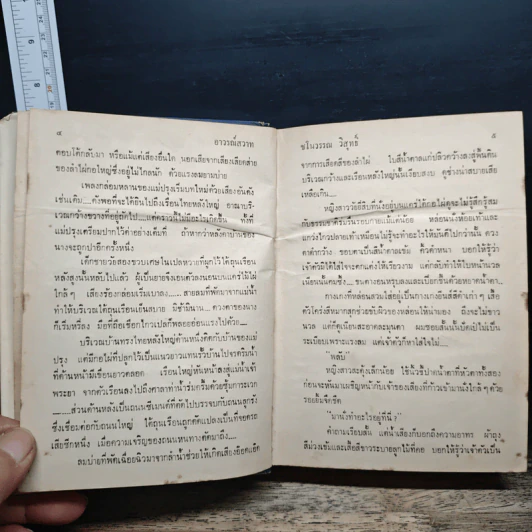 ๔
อาวรณ์สวาท
ตอบโต้กลับมา หรือแม้แต่เสียงอื่นใด นอกเสียจากเสียงเสียดส่าย
ของลำไผ่กอใหญ่ซึ่งอยู่ไม่ไกลนัก ด้วยแรงลมยามบ่าย
เพลงกล่อมหลานของแม่ปรุงเริ่มบทใหม่ด้วยเสียงอันดัง
แม่ปรุงเตรียมปากไว้ค่าอย่างเต็มที่ ถ้าหากว่าหลังคาบ้านของ
นางจะถูกปาอีกครั้งหนึ่ง
เด็กชายวัยสองขวบเศษในเปลหวายที่ผูกไว้ใต้ถุนเรือน
หลังสูงนั้นหลับไปแล้ว ผู้เป็นยายจึงเอนตัวลงนอนบนแคร่ไม้ไผ่
ใกล้ ๆ เสียงร้องกล่อมเริ่มเบาลง...... สายลมที่พัดมาจากแม่น้ำ
ทำให้บริเวณใต้ถุนเรือนเย็นสบาย มิช้ามินาน... ดวงตาของนาง
ก็เริ่มหรี่ลง มือที่ถือเชือกไกวเปลก็พลอยอ่อนแรงไปด้วย...
บริเวณบ้านทรงไทยหลังใหญ่ด้านหนึ่งติดกับบ้านของแม่
ปรุง แต่มีกอไผ่ที่ปลูกไว้เป็นแนวยาวแทนรั้วบ้านไปจรดริมน้ำ
ที่ด้านหน้ามีเขื่อนยาวตลอด เรือนใหญ่หันหน้าลงสู่แม่น้ำเจ้า
พระยา จากตัวเรือนลงไปถึงศาลาท่าน้ำร่มครึ้มด้วยซุ้มการะเวก
......ส่วนด้านหลังเป็นถนนซีเมนต์ที่ตัดไปบรรจบกับถนนลูกรัง
ซึ่งเชื่อมต่อกับถนนใหญ่ ใต้ถุนเรือนถูกดัดแปลงเป็นที่จอดรถ
เสียซีกหนึ่ง เมื่อความเจริญของถนนหนทางตัดมาถึง....
ลมบ่ายที่พัดเฉื่อยฉิวมาจากลำน้ำช่วยให้เกิดเสียงอ๊อดแอ๊ด
ชโนวรรณ วิสุทธิ์
๕
จากการเสียดสีของลำไผ่ ใบสีน้ำตาลแก่ปลิวคว้างลงสู่พื้นดิน
บริเวณกว้างและเรือนหลังใหญ่นั้นเงียบสงบ ดูช่างน่าสบายเสีย
เหลือเกิน....
คาดำกว้าง ขอบตาเป็นสีน้ำตาลเข้ม คิ้วดำหนา บอกให้รู้ว่า
กางเกงที่หล่อนสวมใส่อยู่เป็นกางเกงยีนส์สีดำเก่า ๆ เสื้อ
นวล แต่ก็ดูเนียนสะอาดละมุนตา ผมซอยสั้นนั้นดูเปิ่นไม่เป็น
ระเบียบเพราะแรงลม แต่เจ้าตัวก็หาใส่ใจไม่...
"พลับ"
หญิงสาวสะดุ้งเล็กน้อย ใช้นิ้วชี้ปาดน้ำตาที่หัวตาทั้งสอง
ก่อนจะหันมาเผชิญหน้ากับเจ้าของเสียงที่ก้าวเข้ามานั่งใกล้ ๆ ด้วย
รอยยิ้มจืดชืด
"มานั่งทำอะไรอยู่ที่นี่"
คำถามเรียบสั้น แต่น้ำเสียงก็บอกถึงความอาทร ผ้าถุง
สีม่วงเข้มและเสื้อสีขาวระบายลูกไม้ที่คอ บอกให้รู้ว่าเจ้าตัวเป็น